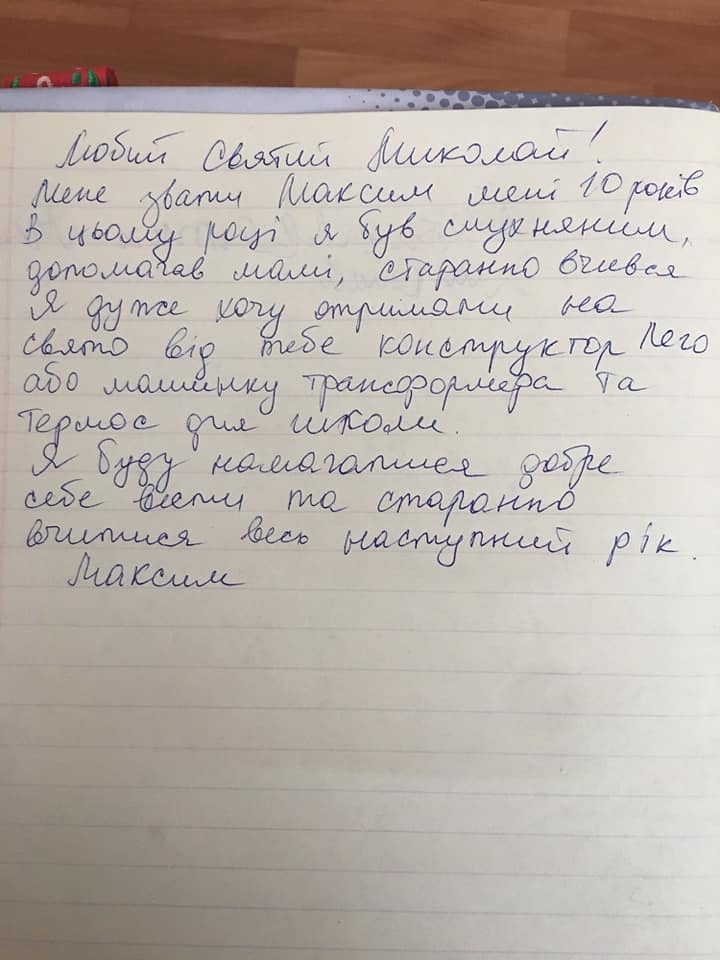 Любий Святий Миколай!
Мене звати Максим мені 10 років
В цьому році я був слухняним,
допомагав мамі, старанно вчився
Я дуже хочу отримати на
свято від тебе конструктор Лего
або машинку трансформера та
термос для школи.
Я буду намагатися добре
себе вести та старанно
вчитися весь наступний рік.
Максим